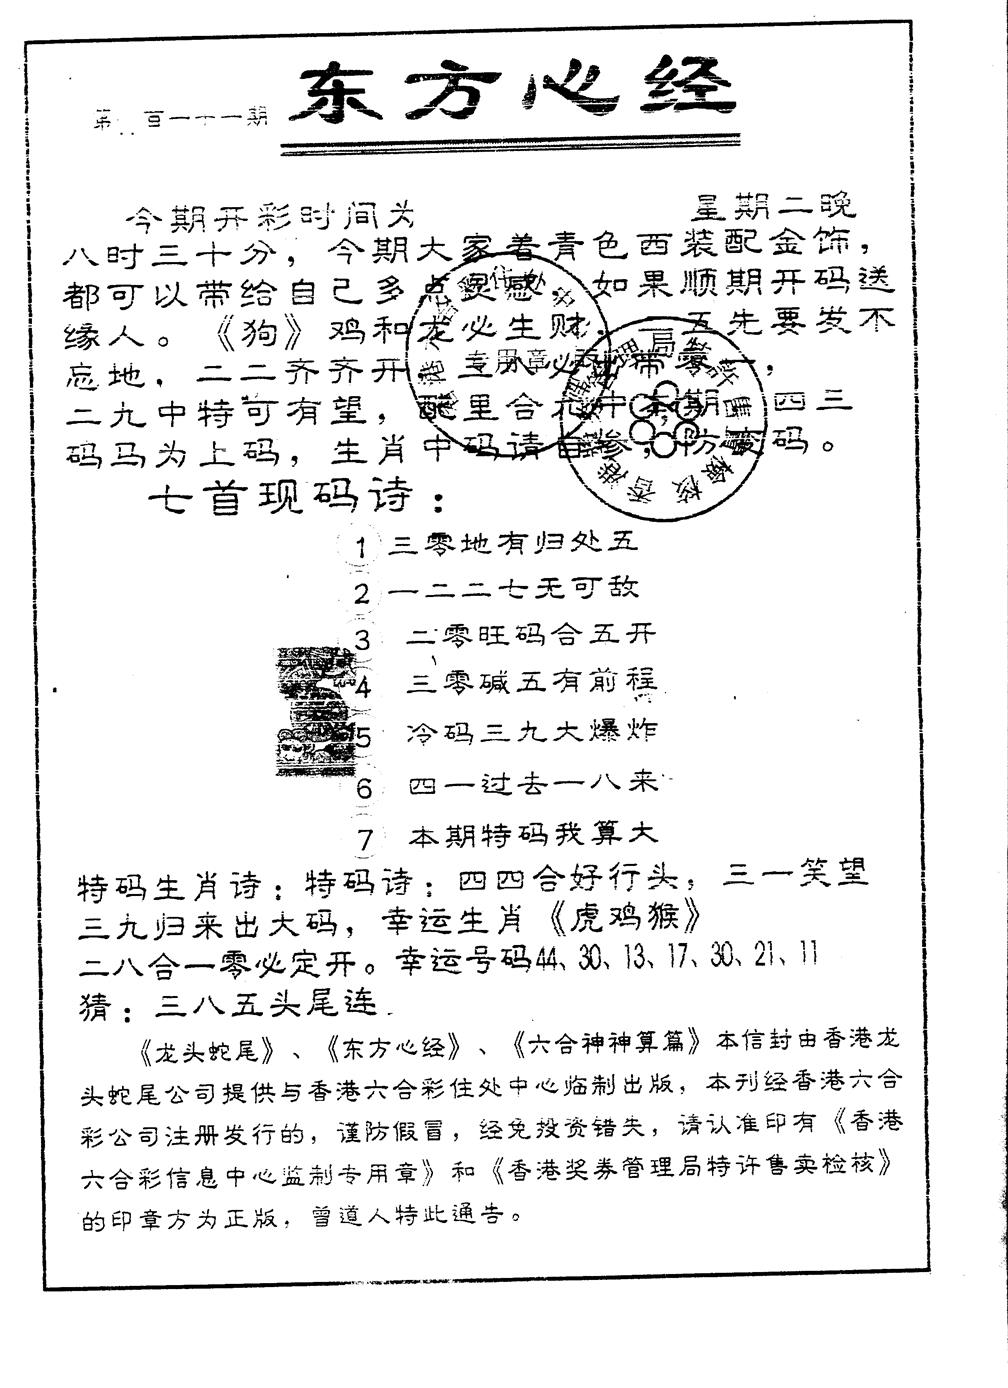 东方心经
第 百一十一期
今期开彩时间为 星期二晚
八时三十分，今期大家着青色西装配金饰，
都可以带给自己多点灵感，如果顺期开码送
缘人。《狗》鸡和龙必生财， 五先要发不
忘地，二二齐齐开 必 带零一，
二九中特可有望，配里合 中 期 四三
码马为上码，生肖中码请自参，防 码。
七首现码诗：
1 三零地有归处五
2 一二二七无可敌
3 二零旺码合五开
4 三零碱五有前程
5 冷码三九大爆炸
6 四一过去一八来
7 本期特码我算大
特码生肖诗：特码诗：四四合好行头，三一笑望
三九归来出大码，幸运生肖《虎鸡猴》
二八合一零必定开。幸运号码44、30、13、17、30、21、11
猜：三八五头尾连
《龙头蛇尾》、《东方心经》、《六合神神算篇》本信封由香港龙
头蛇尾公司提供与香港六合彩住处中心临制出版，本刊经香港六合
彩公司注册发行的，谨防假冒，经免投资错失，请认准印有《香港
六合彩信息中心监制专用章》和《香港奖券管理局特许售卖检核》
的印章方为正版，曾道人特此通告。
专用章